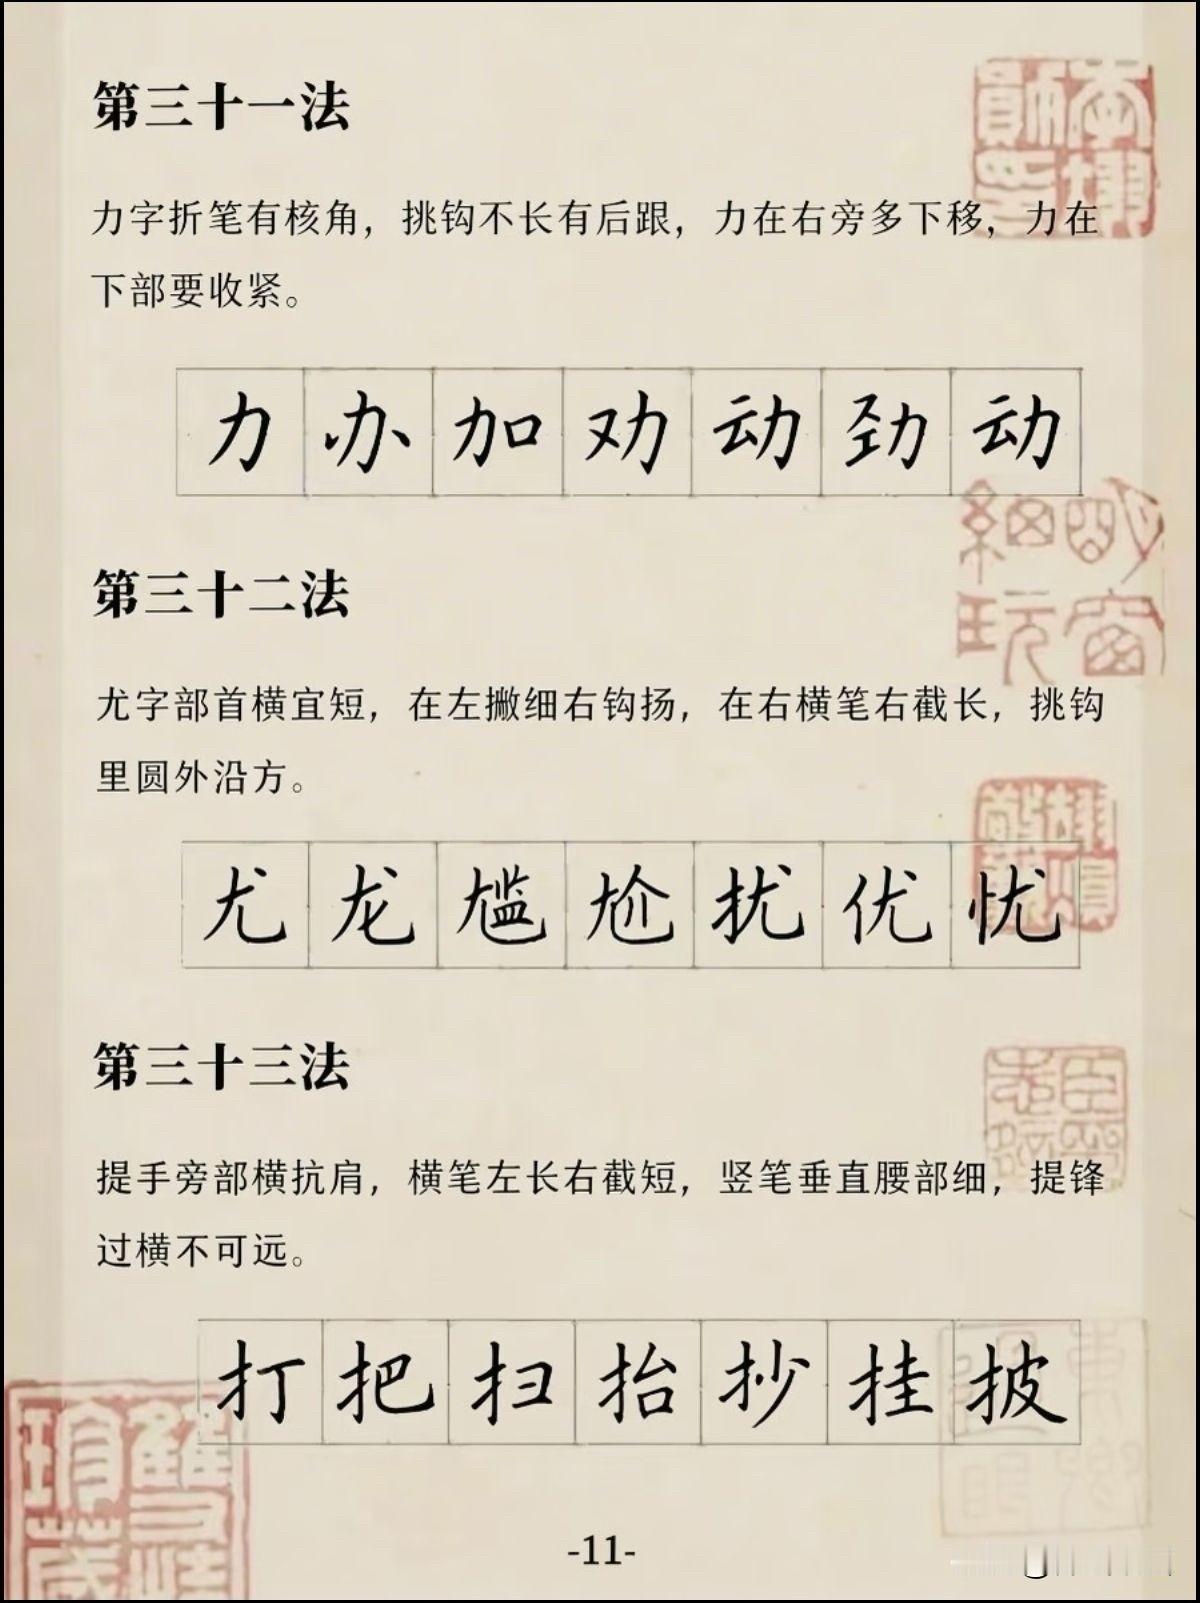 第三十一法
力字折笔有核角，挑钩不长有后跟，力在右旁多下移，力在
下部要收紧。
力 办 加 劝 动 劲 动
第三十二法
尤字部首横宜短，在左撇细右钩扬，在右横笔右截长，挑钩
里圆外沿方。
尢 龙 尴 尬 扰 优 忧
第三十三法
提手旁部横抗肩，横笔左长右截短，竖笔垂直腰部细，提锋
过横不可远。
打 把 扫 抬 抄 挂 披
-11-